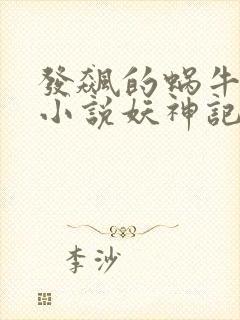 發飆的蝸牛
小說妖神記
李沙